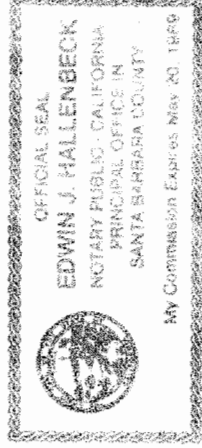 OFFICIAL SEAL
EDWIN J. HALLENBECK
NOTARY PUBLIC - CALIFORNIA
PRINCIPAL OFFICE IN
SANTA BARBARA COUNTY
My Commission Expires May 20, 1989